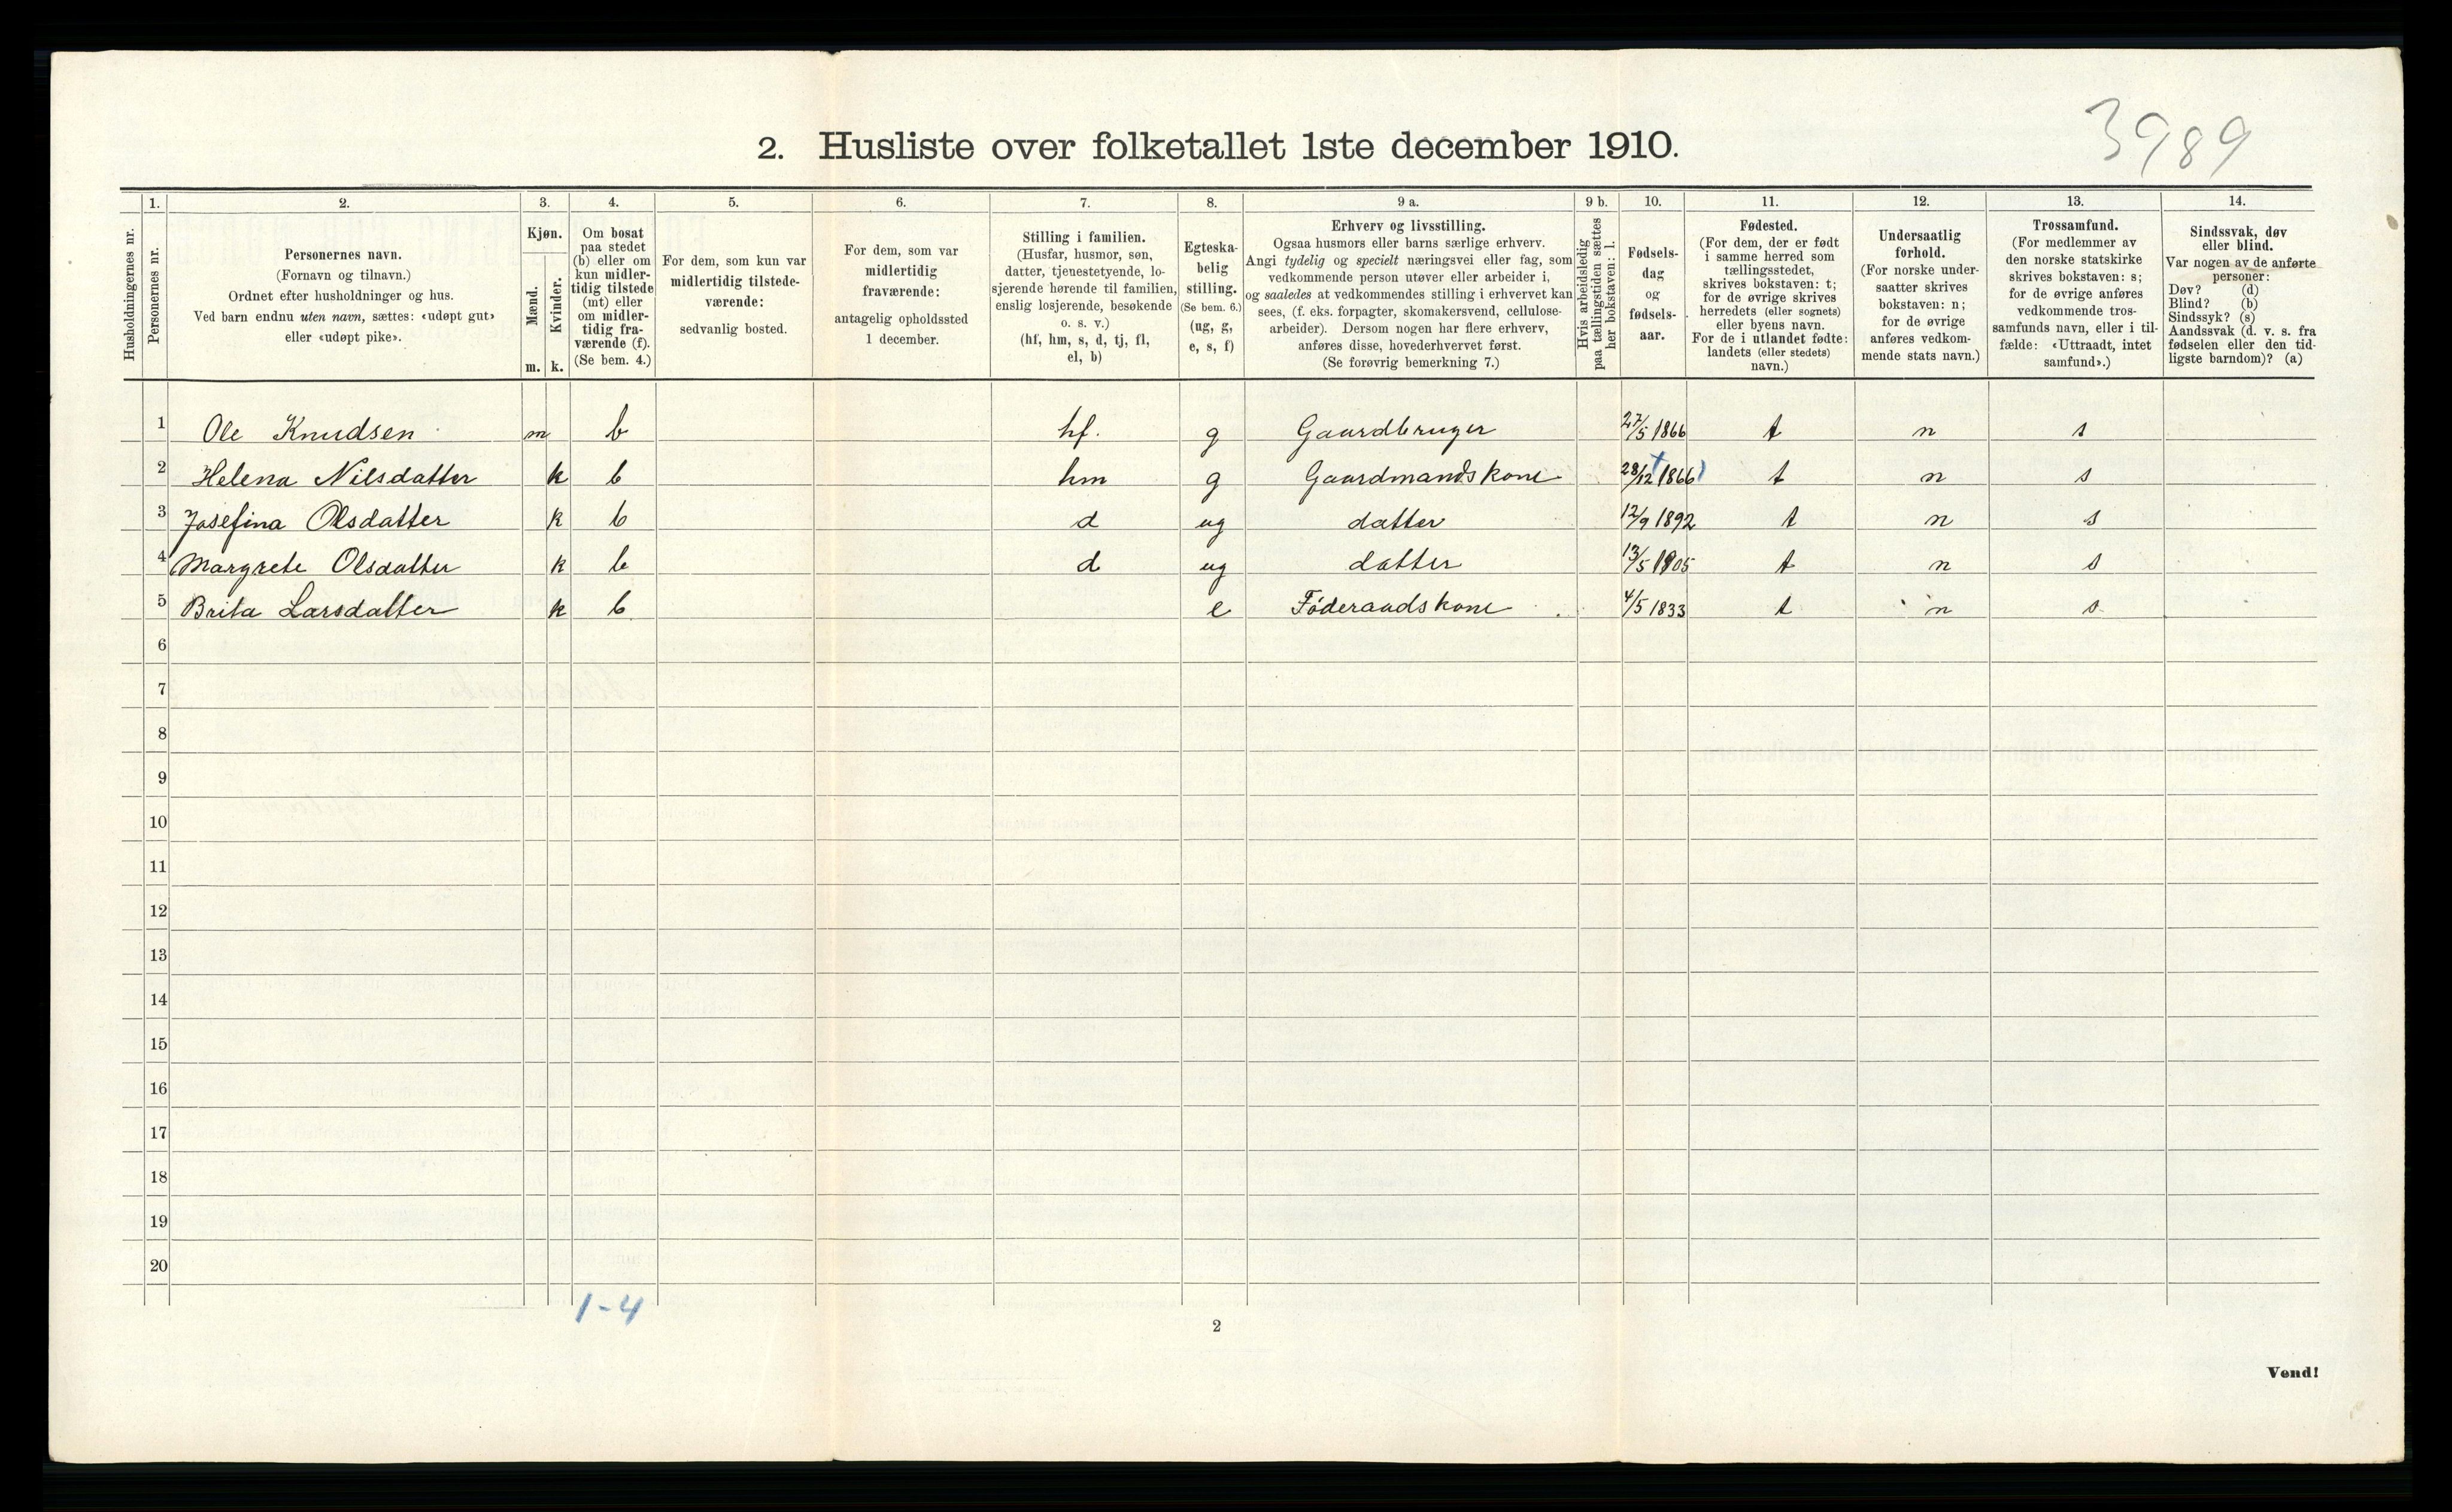 3989
2. Husliste over folketallet 1ste december 1910.
Husholdningernes nr.
1.
Personernes nr.
2.
Personernes navn.
(Fornavn og tilnavn.)
Ordnet efter husholdninger og hus.
Ved barn endnu uten navn, sættes: «udøpt gut»
eller «udøpt pike».
3.
Kjøn.
Mænd.
Kvinder.
m. k.
4.
Om bosat
paa stedet
(b) eller om
kun midler-
tidig tilstede
(mt) eller
om midler-
tidig fra-
værende (f).
(Se bem. 4.)
5.
For dem, som kun var
midlertidig tilstede-
værende:
sedvanlig bosted.
6.
For dem, som var
midlertidig
fraværende:
antagelig opholdssted
1 december.
7.
Stilling i familien.
(Husfar, husmor, søn,
datter, tjenestetyende, lo-
sjerende hørende til familien,
enslig losjerende, besøkende
o. s. v.)
(hf, hm, s, d, tj, fl,
el, b)
8.
Egteska-
belig
stilling.
(Se bem. 6.)
(ug, g,
e, s, f)
9 a.
Erhverv og livsstilling.
Ogsaa husmors eller barns særlige erhverv.
Angi tydelig og specielt næringsvei eller fag, som
vedkommende person utøver eller arbeider i,
og saaledes at vedkommendes stilling i erhvervet kan
sees, (f. eks. forpagter, skomakersvend, cellulose-
arbeider). Dersom nogen har flere erhverv,
anføres disse, hovederhvervet først.
(Se forøvrig bemerkning 7.)
9 b.
Hvis arbeidsledig
paa tællingstiden sættes
her bokstaven: l.
10.
Fødsels-
dag
og
fødsels-
aar.
11.
Fødested.
(For dem, der er født
i samme herred som
tællingsstedet,
skrives bokstaven: t;
for de øvrige skrives
herredets (eller sognets)
eller byens navn.
For de i utlandet fødte:
landets (eller stedets)
navn.)
12.
Undersaatlig
forhold.
(For norske under-
saatter skrives
bokstaven: n;
for de øvrige
anføres vedkom-
mende stats navn.)
13.
Trossamfund.
(For medlemmer av
den norske statskirke
skrives bokstaven: s;
for de øvrige anføres
vedkommende tros-
samfunds navn, eller i til-
fælde: «Uttraadt, intet
samfund».)
14.
Sindssvak, døv
eller blind.
Var nogen av de anførte
personer:
Døv? (d)
Blind? (b)
Sindssyk? (s)
Aandssvak (d. v. s. fra
fødselen eller den tid-
ligste barndom)? (a)
1 Ole Knudsen m b hf. g Gaardbruger 27/5 1866 t n s
2 Helena Nilsdatter k b hm g Gaardmandskone 28/12 1866 t n s
3 Josefina Olsdatter k b d ug datter 12/9 1892 t n s
4 Margrete Olsdatter k b d ug datter 13/5 1905 t n s
5 Brita Larsdatter k b e Föderaadskone 4/5 1833 t n s
6
7
8
9
10
11
12
13
14
15
16
17
18
19
20
1-4
2
Vend!